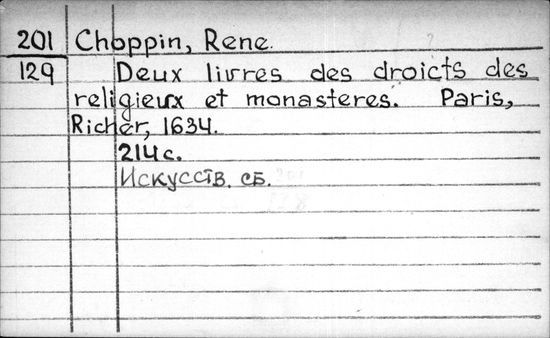 201 Choppin, Rene
129 Deux livres des droicts des
religieux et monasteres. Paris,
Richer, 1634.
214 c.
Искусств. сб.